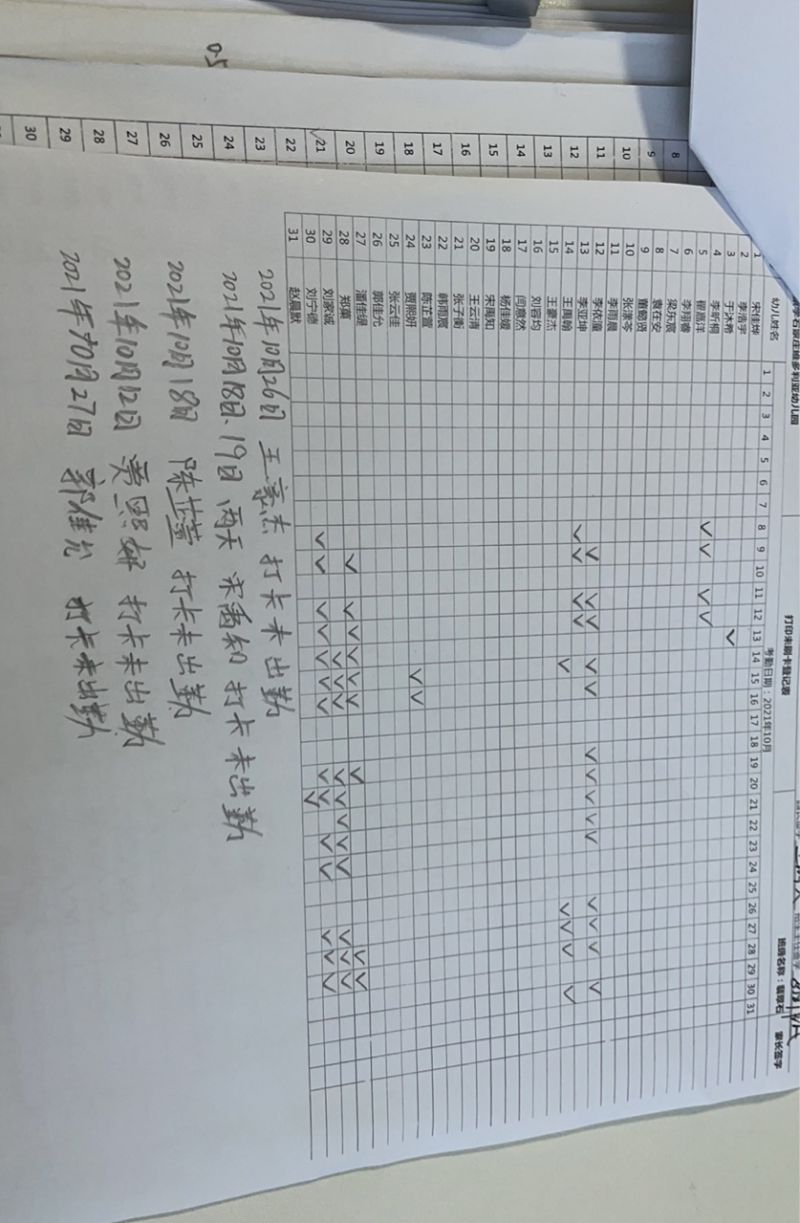 0.5
8
9
10
11
12
13
14
15
16
17
18
19
20
√21
22
23
24
25
26
27
28
29
30
石家庄维多利亚幼儿园 打印未刷卡登记表 班级名称：翡翠石 家长签字
幼儿姓名 考勤日期：2021年10月
1 2 3 4 5 6 7 8 9 10 11 12 13 14 15 16 17 18 19 20 21 22 23 24 25 26 27 28 29 30 31
1 宋佳烨
2 李浩宇
3 于沐希 ✓
4 李昕桐
5 翟嘉洋 ✓ ✓ ✓ ✓
6 李翔睿
7 梁乐宸
8 袁在安
9 董懿贤
10 张漾苓
11 李雨晨
12 李依潼 ✓ ✓ ✓ ✓ ✓ ✓ ✓ ✓ ✓ ✓ ✓ ✓ ✓ ✓
13 李亚坤 ✓ ✓ ✓ ✓
14 王禹翰 ✓ ✓ ✓ ✓ ✓
15 王豪杰
16 刘容均
17 闫意然
18 杨佳嫒
19 宋禹知
20 王云清
21 张子衡
22 韩雨宸
23 陈芷萱
24 贾熙妍 ✓ ✓
25 张云佳
26 郭佳允
27 潘佳缇
28 郑
29 刘家诚
30 刘宁德
31 赵晨默
2021年10月26日 王豪杰 打卡未出勤
2021年10月18日、19日 两天 宋禹知 打卡未出勤
2021年10月18日 陈芷萱 打卡未出勤
2021年10月12日 贾熙妍 打卡未出勤
2021年10月27日 郭佳允 打卡未出勤